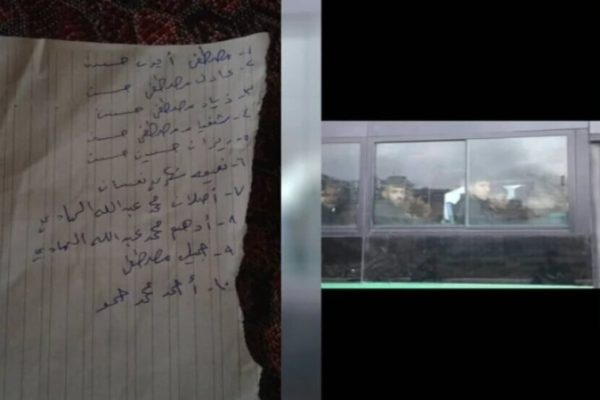 ١- مصطفى أيوب حسين
٢- عادل مصطفى حسين
٣- زياد مصطفى حسين
٤- مصطفى حسين
٥- حسين حسين
٦- نعسان
٧- أصلان محمد عبد الله الهادي
٨- أدهم محمد عبد الله الهادي
٩- جميل مصطفى
١٠- أحمد محمد حمو